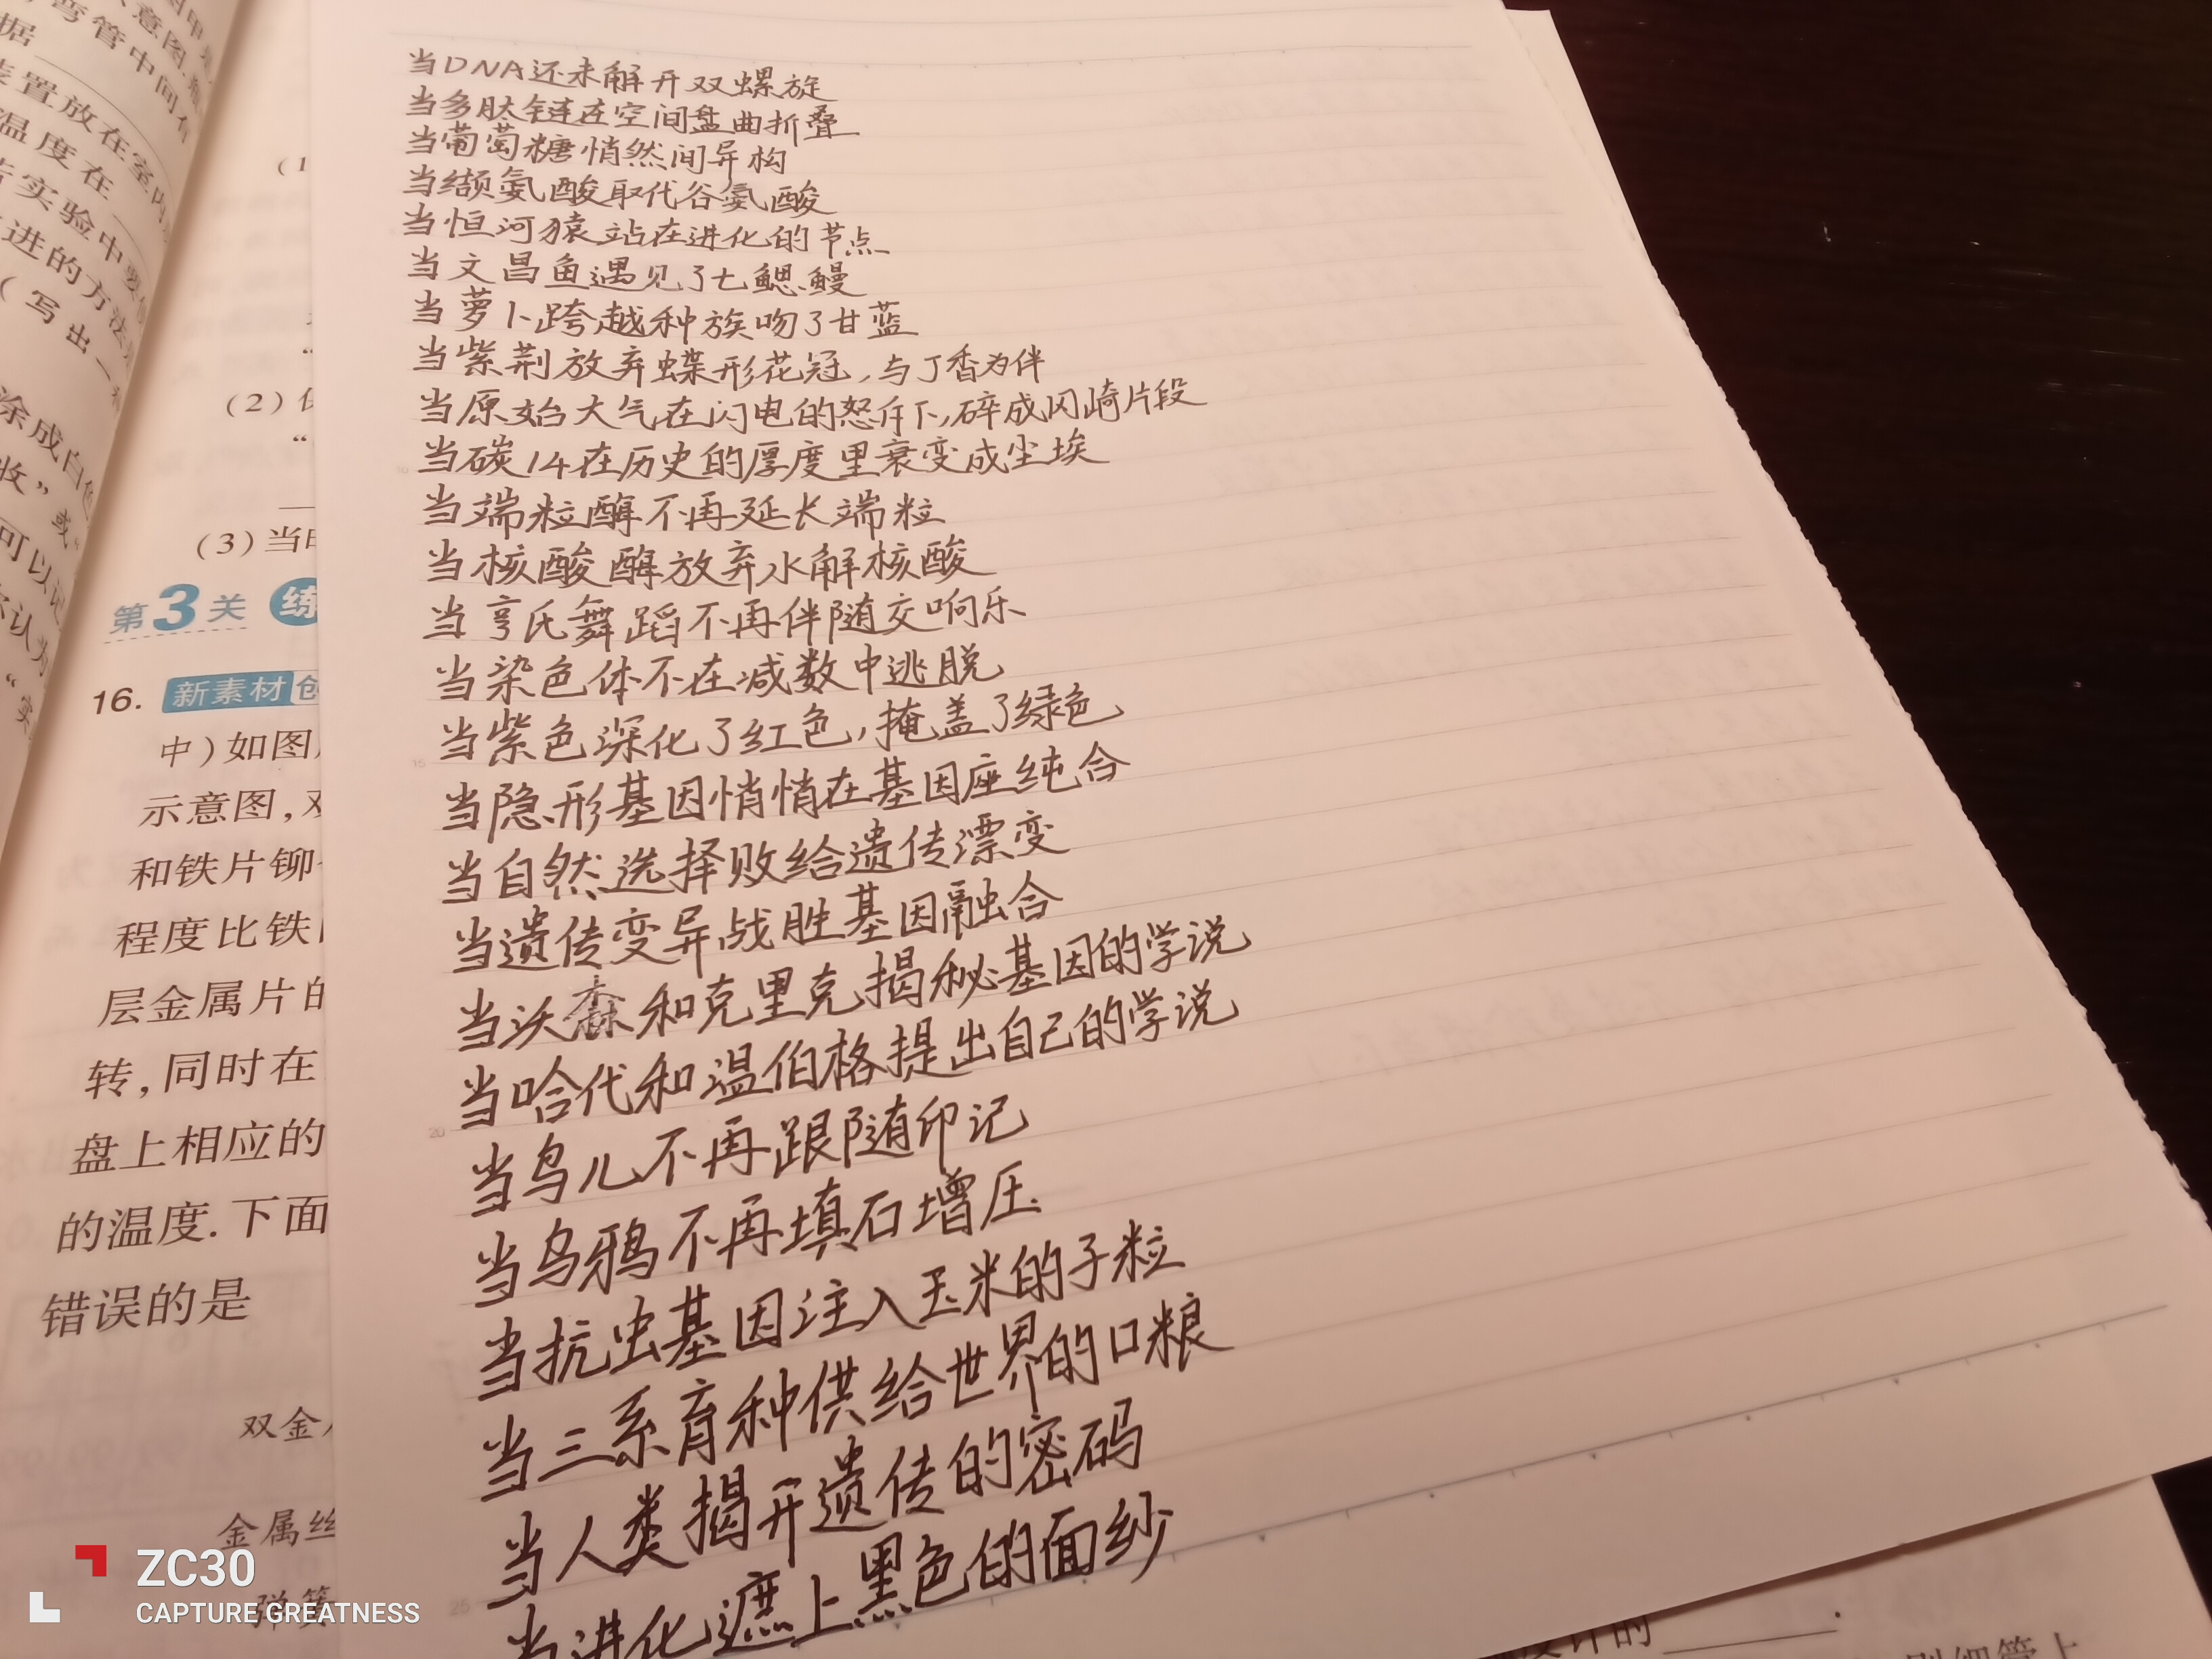 当DNA还未解开双螺旋
当多肽链在空间盘曲折叠
当葡萄糖悄然间异构
当缬氨酸取代谷氨酸
当恒河猿站在进化的节点
当文昌鱼遇见了七鳃鳗
当萝卜跨越种族吻了甘蓝
当紫荆放弃蝶形花冠,与丁香为伴
当原始大气在闪电的怒斥下,碎成冈崎片段
当碳14在历史的厚度里衰变成尘埃
当端粒酶不再延长端粒
当核酸酶放弃水解核酸
当亨氏舞蹈不再伴随交响乐
当染色体不在减数中逃脱
当紫色深化了红色,掩盖了绿色
当隐形基因悄悄在基因座纯合
当自然选择败给遗传漂变
当遗传变异战胜基因融合
当沃森和克里克揭秘基因的学说
当哈代和温伯格提出自己的学说
当鸟儿不再跟随印记
当乌鸦不再填石增压
当抗虫基因注入玉米的子粒
当三系育种供给世界的口粮
当人类揭开遗传的密码
当进化遮上黑色的面纱
弯管中间有
据
装置放在室内
温度在
实验中要
进的方法
(写出一
涂成白色
收”或“
可以记
(2)
(3)当
第3关 练
16. 新素材创
中)如图
示意图,双
和铁片铆
程度比铁
层金属片的
转,同时在
盘上相应的
的温度.下面
错误的是
双金
金属丝
弹簧
ZC30
CAPTURE GREATNESS